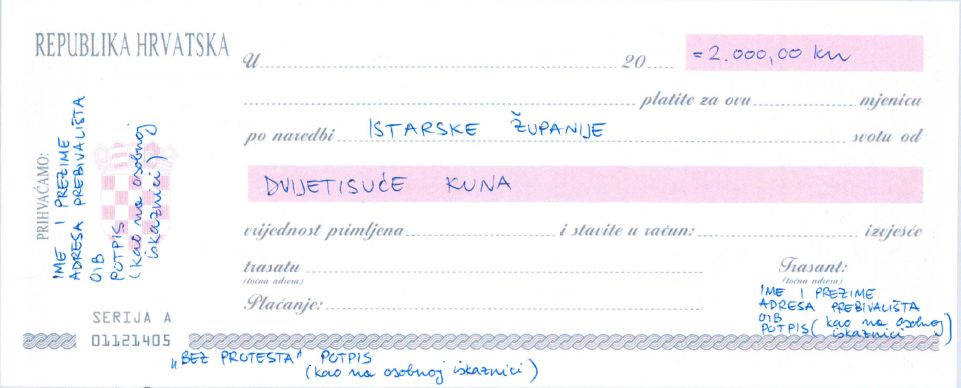 REPUBLIKA HRVATSKA
U 20 = 2.000,00 kn
platite za ovu mjenicu
po naredbi ISTARSKE ŽUPANIJE svotu od
DVIJETISUĆE KUNA
vrijednost primljena i stavite u račun: izvješće
trasatu
(točna adresa)
Plaćanje:
Trasant:
(točna adresa)
IME I PREZIME
ADRESA PREBIVALIŠTA
OIB
POTPIS (kao na osobnoj
iskaznici)
PRIHVAĆAMO:
IME I PREZIME
ADRESA PREBIVALIŠTA
OIB
POTPIS
(kao na osobnoj
iskaznici)
SERIJA A
01121405
„BEZ PROTESTA" POTPIS
(kao na osobnoj iskaznici)